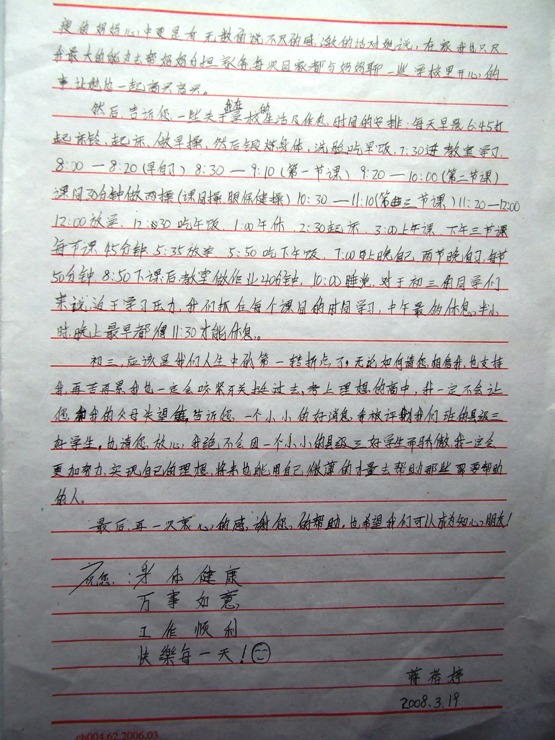 我爸妈妈心中更是有无数句说不尽的感激的话对她说,在家我也只尽
我最大的能力去帮妈妈分担家务每次回家都与妈妈聊一些学校里开心的
事让她也一起高兴高兴。
然后告诉您一些关于学校的生活及作息时间的安排:每天早晨6:45打
起床铃、起床、做早操,然后锻炼身体,洗脸吃早饭,7:30进教室学习
8:00 — 8:20(早自习) 8:30 — 9:10(第一节课) 9:20 — 10:00(第二节课)
课间30分钟做两操(课间操眼保健操) 10:30 — 11:10(第三节课) 11:20 — 12:00
12:00放学, 12:30吃午饭, 1:00午休, 2:30起床, 3:00上课,下午三节课
每节课45分钟 5:35放学, 5:50吃下午饭, 7:00上晚自习,两节晚自习,每节
50分钟 8:50下课后教室做作业40分钟, 10:00睡觉,对于初三的同学们
来说,迫于学习压力,我们抓住每个课间的时间学习,中午最多休息半小
时,晚上最早都得11:30才能休息。
初三,应该是我们人生中的第一转折点了,无论如何请您相信我,也支持
我,再苦再累我也一定会咬紧牙关挺过去,考上理想的高中,我一定不会让
您和我的父母失望的,告诉您,一个小小的好消息,我被评到我们班的县级三
好学生,也请您放心,我绝不会因一个小小的县级三好学生而骄傲,我一定会
更加努力,实现自己的理想,将来也能用自己微薄的力量去帮助那些需要帮助
的人。
最后,再一次衷心的感谢您的帮助,也希望我们可以成为知心朋友!
祝您:身体健康
万事如意
工作顺利
快樂每一天!
蒋蓉婷
2008.3.19.
ch004.62.2006.03